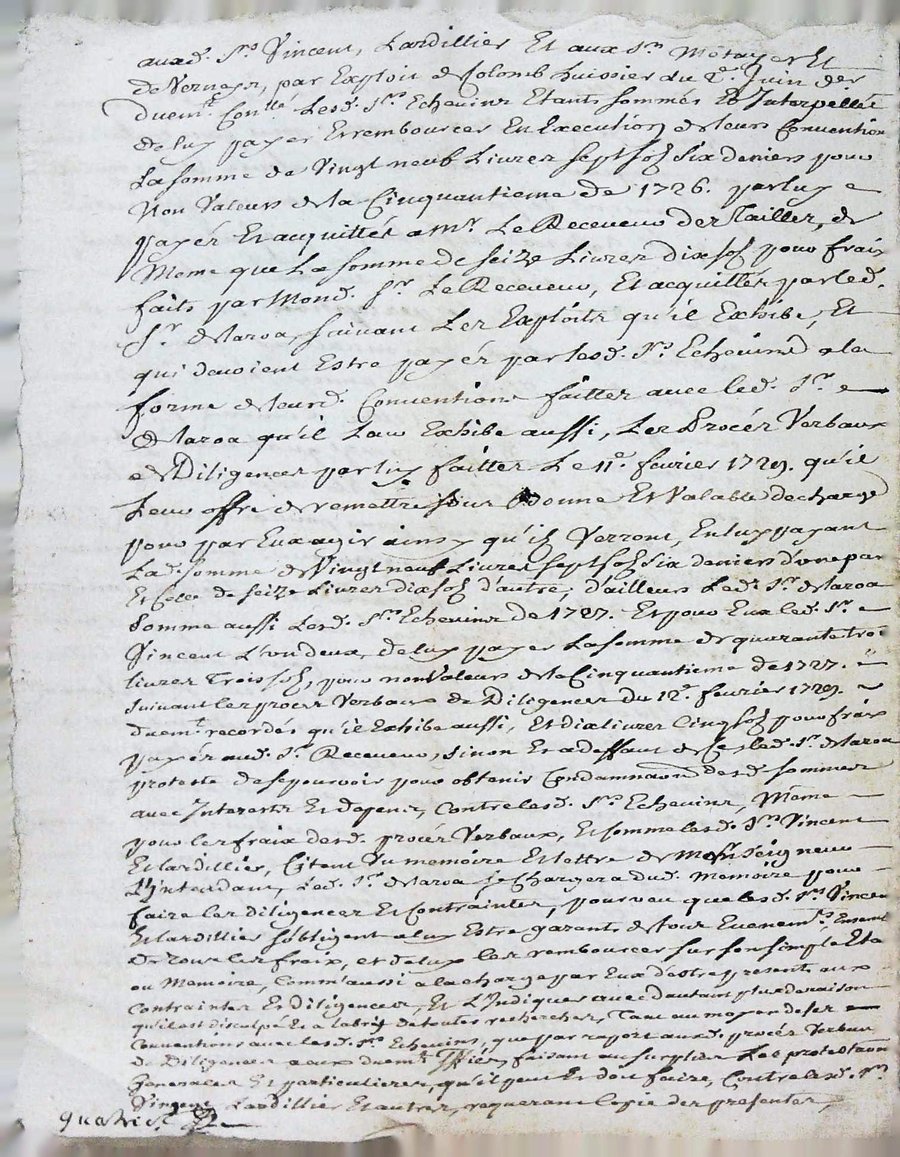 auxd. Srs Vincent, Lardillier Et aux Srs Métayer Et
de Verneys, par Exploit de Colomb huissier du 2e. Juin der
duemt. Conlle Lesd. Srs Echevins Etants sommés Et Interpellés
de luy payer Et rembourcer En Execution de leurs Convention
La somme de Vingt neuf Livres sept sols six deniers pour
Non Valeurs de la Cinquantieme de 1726. par luy
payés Et acquittés a Mr. Le Receveur des Tailles, de
Meme que La somme de seize Livres dix sols pour frais
faits par Mond. Sr. Le Receveur, Et acquittés par led.
Sr. Delaroa, suivant Les Exploits qu'il Exhibe, Et
qui devoient Estre payés par lesd. Srs Echevins a la
forme de leurd. Conventions faittes avec led. Sr.
Delaroa qu'il Leur Exhibe aussi, Les Procés Verbaux
de Diligences par luy faittes Le 11e. fevrier 1729. qu'il
Leur offre de remettre sous bonne Et Valable decharge
pour par Eux agir ainsy qu'ils Verront, En luy payant
Lad. somme de Vingt neuf Livres sept sols six deniers d'une part
Et Celle de seize Livres dix sols d'autre, d'ailleurs Led. Sr. Delaroa
somme aussi Lesd. Srs Echevins de 1727. Et pour Eux led. Sr.
Vincent L'un deux, de luy payer La somme de quarante trois
livres Trois sols, pour non Valeurs de la Cinquantieme de 1727.
suivant les procés Verbaux de Diligences du 12e. fevrier 1729.
duemt. recordés qu'il Exhibe aussi, Et dix livres Cinq sols pour frais
payés aud. Sr. Receveur, sinon Et a deffaut de Ce, led. Sr. Delaroa
proteste de se pourvoir pour obtenir Condamnaon desd. sommes
avec Interests Et depens, Contre lesd. Srs Echevins, Méme
pour les fraix desd. procés Verbaux, Et somme lesd. Srs Vincent
Et Lardillier, Citent Du memoire Et lettre de Monseigneur
L'Intendant, Led. Sr. Delaroa se Chargera dud. Memoire pour
faire les diligences Et Contraintes, pourveu que lesd. Srs Vincent
Et Lardillier s'obligent a luy Estre garants de tous Evenemts,
de tous les fraix, et de luy les rembourcer sur son simple Etat
ou Memoire, Comm'aussi a la charge par Eux d'estre presents aux
Contraintes Et diligences, Et L'Indiquer avec d'autant plus de raison
qu'il est disculpé Et a l'abry de toutes recherches, Tant au moyen des
Conventions avec lesd. Srs Echevins, que par raport auxd. procés Verbaux
de Diligences a eux duemt. faisant au surplus Les protestaons
Generales Et particulieres, qu'il peut Et doit faire, Contre lesd. Srs
Vincent, Lardillier Et autres, requerant Copie des presentes,